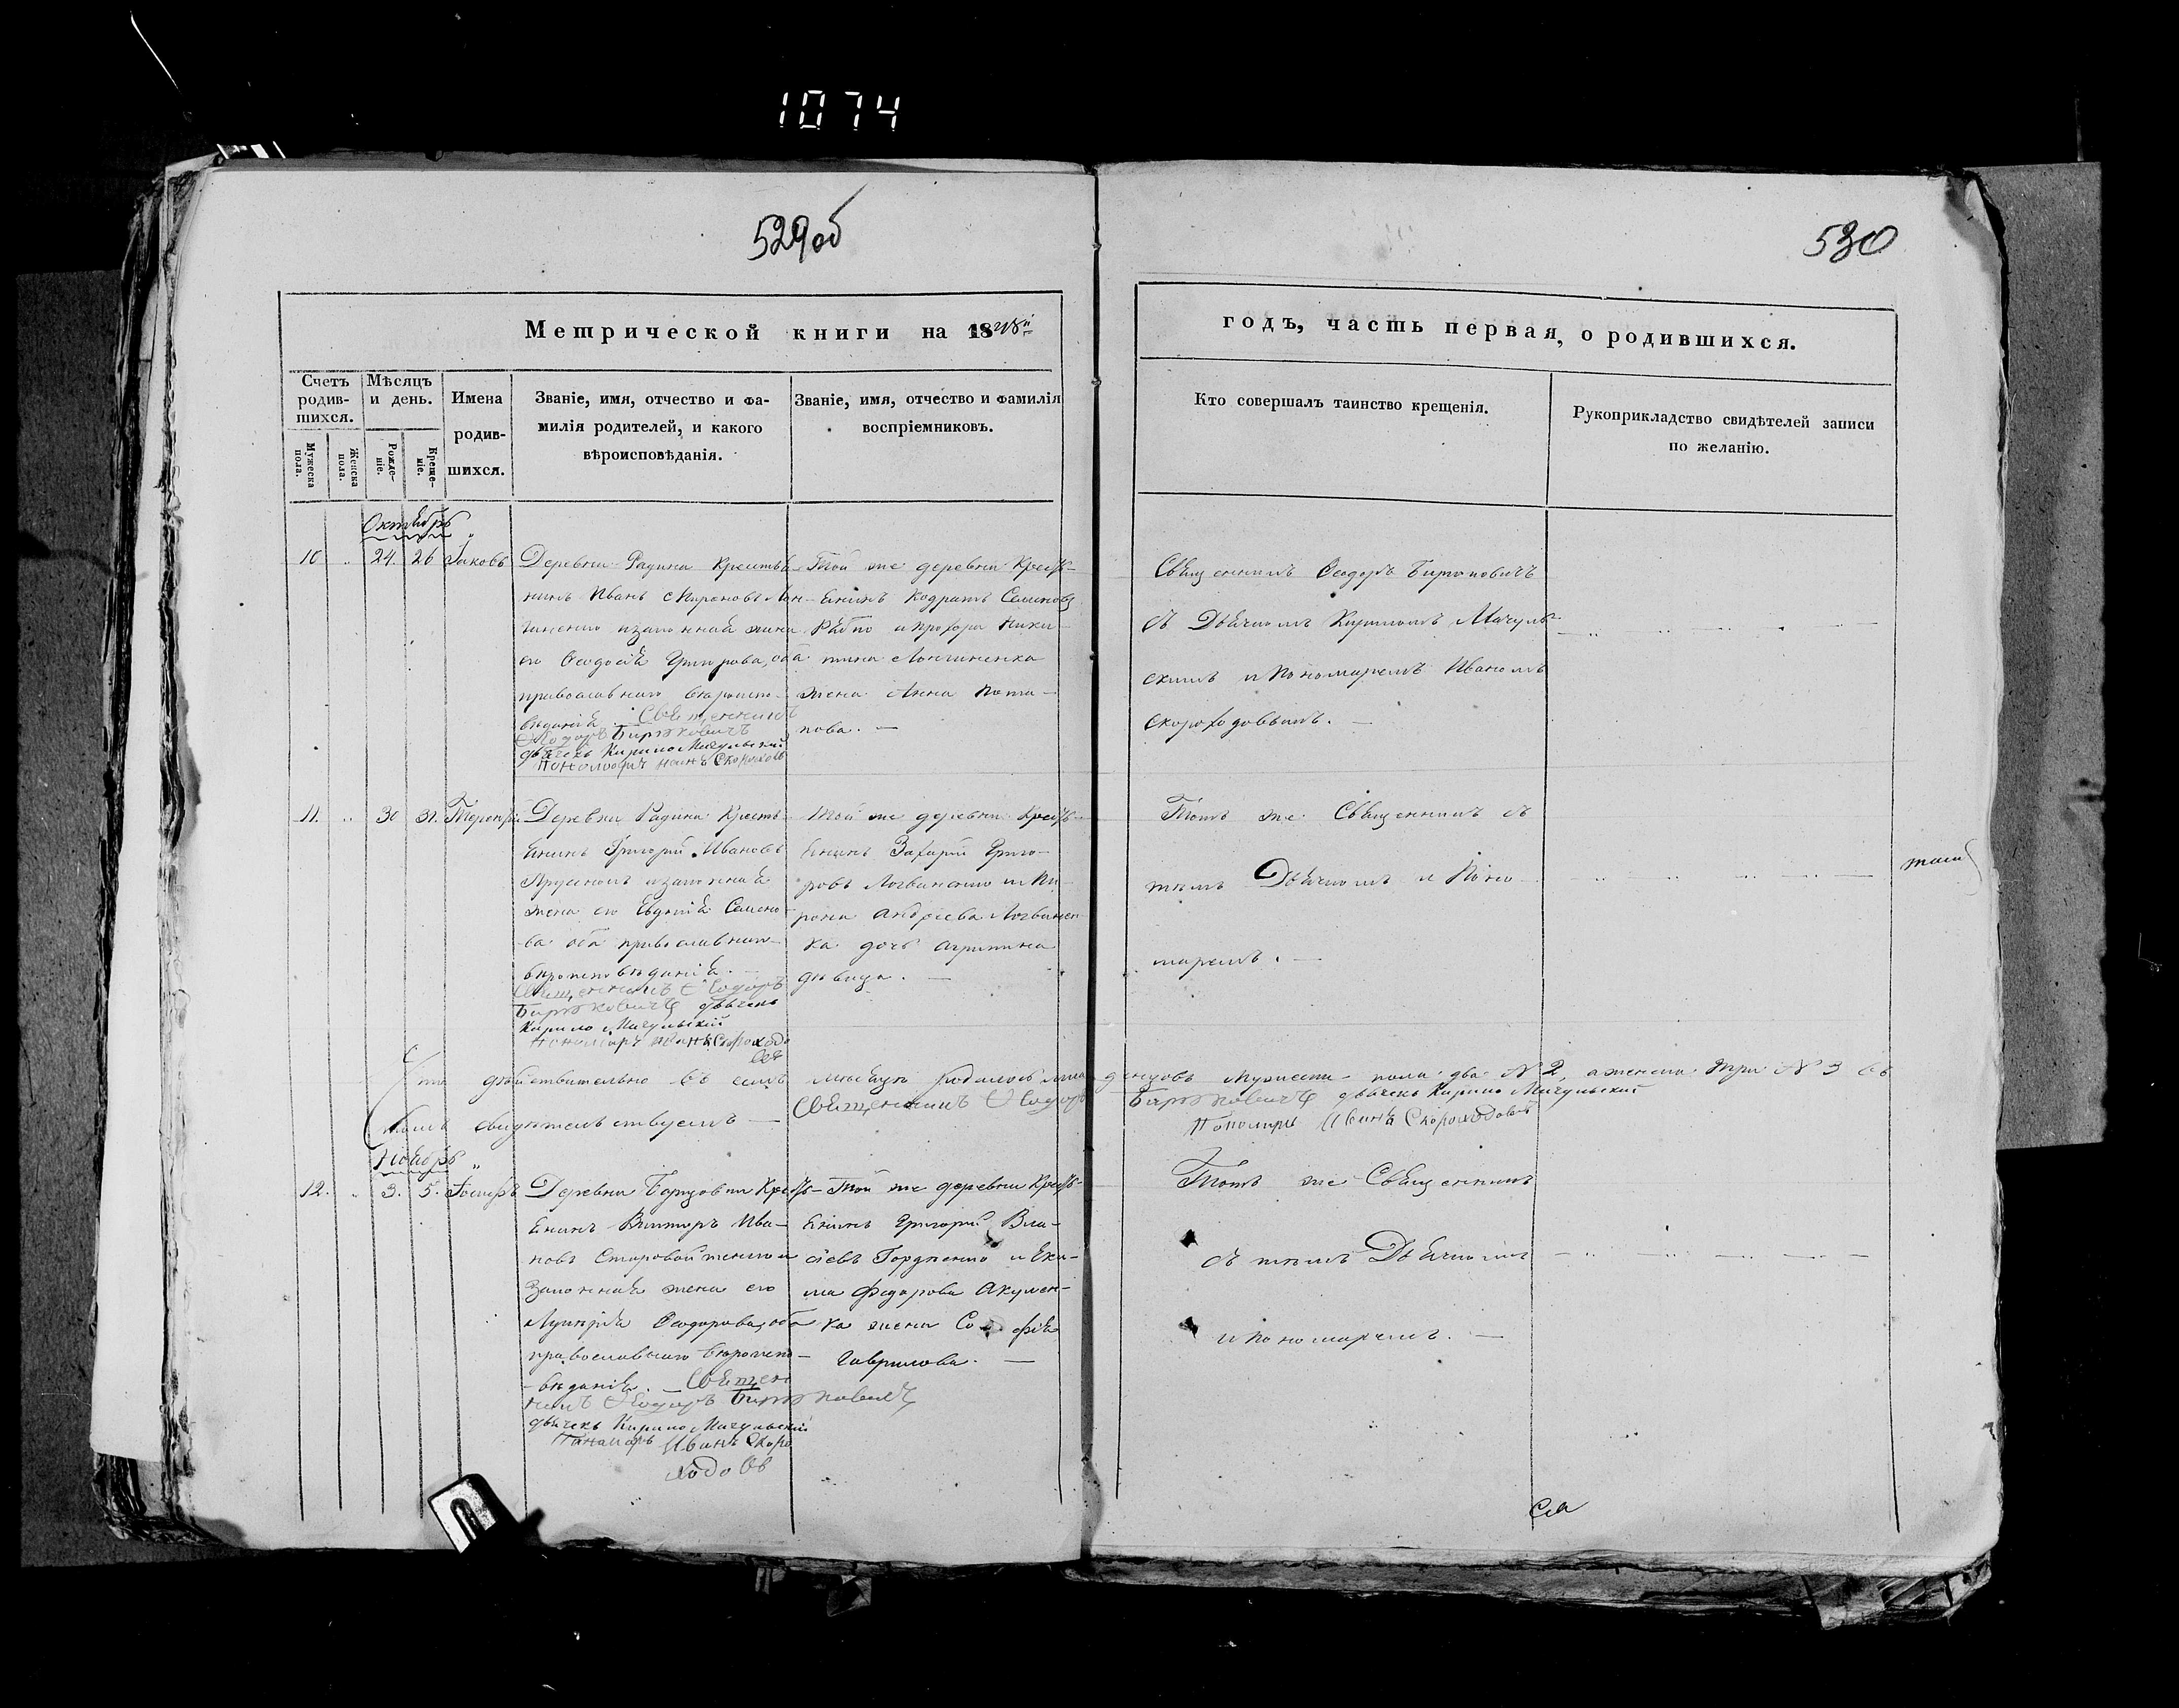 1074
529об
530
Метрической книги на 1848й
годъ, часть первая, о родившихся.
Счетъ родив-шихся.
Мужеска пола.
Женска пола.
Мѣсяцъ и день.
Рожде-ніе.
Креще-ніе.
Имена
родив-
шихся.
Званіе, имя, отчество и фа-
милія родителей, и какого
вѣроисповѣданія.
Званіе, имя, отчество и фамилія
воспріемниковъ.
Кто совершалъ таинство крещенія.
Рукоприкладство свидѣтелей записи
по желанію.
Октябрь
10 24. 26 Іаковъ
Деревни Радина Крестья-
нинъ Иванъ
законная жена
его Ѳеодосія Григорова, оба
православнаго вѣроиспо-
вѣданія. Священникъ
Ѳеодоръ
дьячекъ Кирило Мигульскій
Пономарь
Той же деревни Кресть-
янинъ Кодратъ Семеновъ
и Прохора Ники-
тина
жена Анна
пова. —
Священникъ Ѳеодоръ
съ Дьячкомъ Кириломъ Мигуль-
скимъ и Пономаремъ Иваномъ
Скороходовымъ. —
11. 30 31. Терентій
Деревни Радина Кресть-
янинъ Григорий Ивановъ
и законная
жена его Евдокія Семено-
ва оба православнаго
вѣроисповѣданія. —
Священникъ Ѳеодоръ
дьячекъ
Кирило Мигульскій
Пономарь Иванъ Скороходо
въ
Той же деревни Кресть-
янинъ Захарій Григо-
ровъ Логвиненко и Ми-
рона Андреева Логвинен-
ка дочь Агрипина
дѣвица. —
Тотъ же Священникъ съ
тѣмъ Дьячкомъ и Поно-
маремъ. —
Что дѣйствительно въ семъ мѣсяцѣ родилось младенцовъ мужеска пола два № 2, а женска три № 3 въ
томъ свидѣтельствуемъ — Священникъ Ѳеодоръ
дьячекъ Кирило Мигульскій
Пономарь Иванъ Скороходовъ
Ноябрь
12. 3. 5. Іосифъ
Деревни Кресть-
янинъ Викторъ Ива-
новъ Старовойтенко и
законная жена его
Ѳеодорова, оба
православнаго вѣроиспо-
вѣданія. — Священ
никъ Ѳеодоръ
дьячекъ Кирило Мигульскій
Понамарь Иванъ Скоро
ходовъ
Той же деревни Кресть-
янинъ Григорій Вла-
сіевъ Гордѣенко и Еки-
ма Федорова Акулен-
ка жена Софія
Гаврилова. —
Тотъ же Священникъ
съ тѣмъ Дьячкомъ
и пономаремъ. —